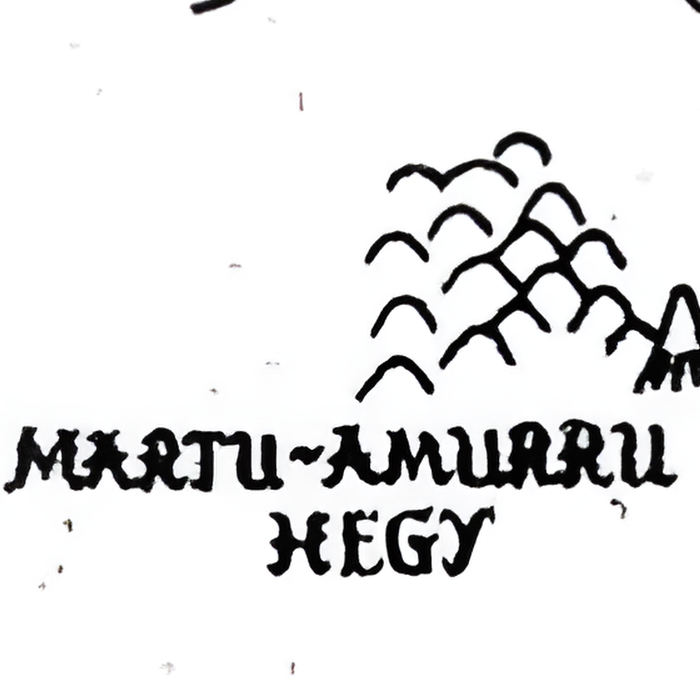 MARTU-AMURRU
HEGY